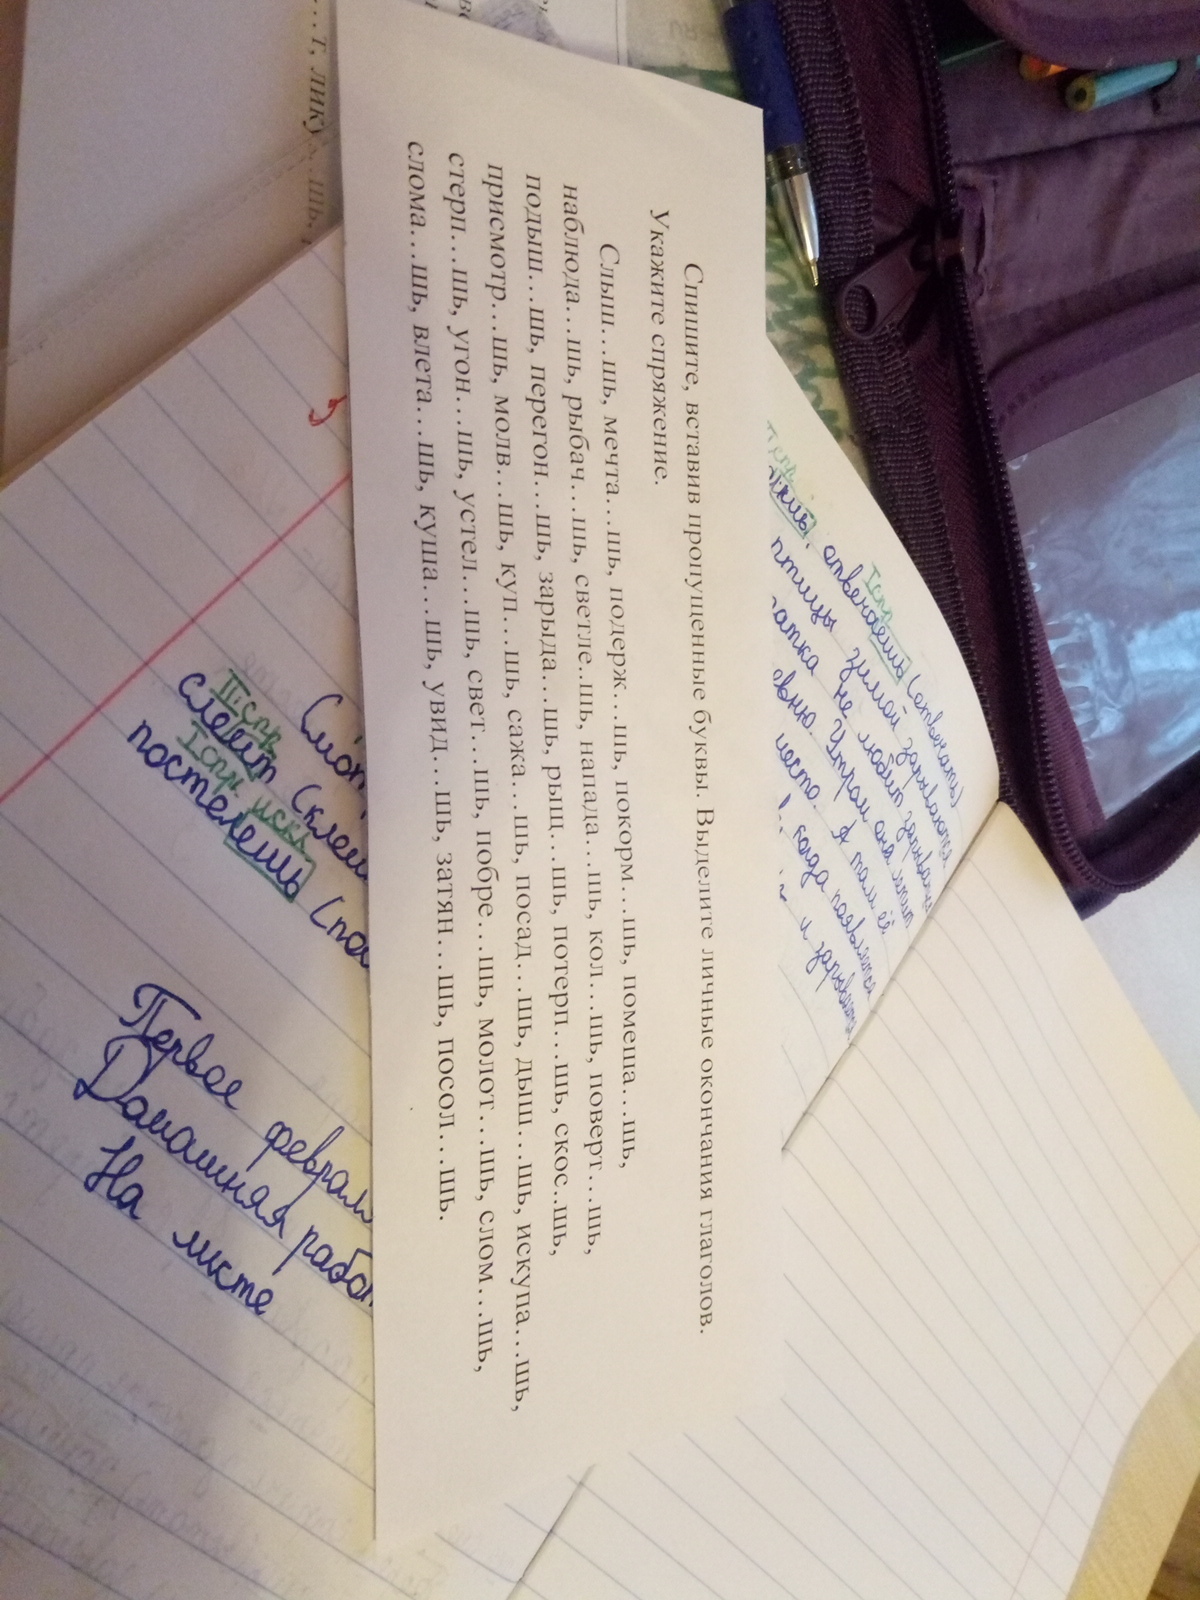 Спишите, вставив пропущенные буквы. Выделите личные окончания глаголов.
Укажите спряжение.
Слыш…шь, мечта…шь, подерж…шь, покорм…шь, помеша…шь,
наблюда…шь, рыбач…шь, светле..шь, напада…шь, кол…шь, поверт…шь,
подыш…шь, перегон…шь, зарыда…шь, рыщ…шь, потерп…шь, скос..шь,
присмотр…шь, молв…шь, куп…шь, сажа…шь, посад…шь, дыш…шь, искупа…шь,
стерп…шь, угон…шь, устел…шь, свет…шь, побре…шь, молот…шь, слом…шь,
слома…шь, влета…шь, куша…шь, увид…шь, затян…шь, посол…шь.
Iспр
отвечаешь (отвечать)
птицы зимой зарываются
не любит
Утром она летит
месте. А там её
когда появляется
и
IIспр
Iспр искл
постелешь
Первое
Домашняя
На листе